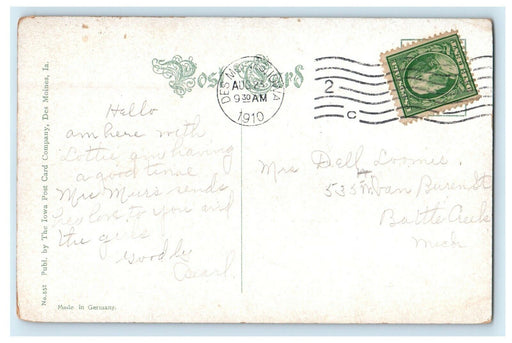 Post Card
DES MOINES, IOWA
AUG 2
9 30 AM
1910
2
C
Hello
am here with
Lottie, am having
a good time
Mrs sends
her love to you and
the girls
Goodby
Pearl.
Mrs Dell Loomis.
535 Van Buren St
Battle Creek
Mich
No. 552 Publ. by The Iowa Post Card Company, Des Moines, Ia.
Made in Germany.